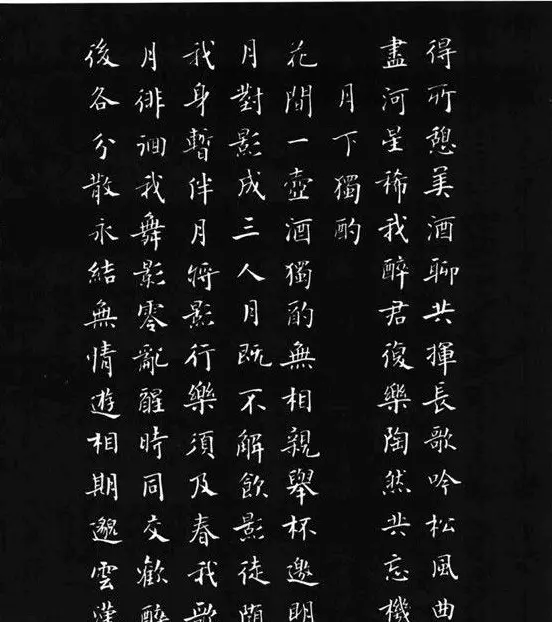 得所憩美酒聊共揮長歌吟松風曲
盡河星稀我醉君復樂陶然共忘機
月下獨酌
花間一壺酒獨酌無相親舉杯邀明
月對影成三人月既不解飲影徒隨
我身暫伴月將影行樂須及春我歌
月徘徊我舞影零亂醒時同交歡醉
後各分散永結無情遊相期邈雲漢